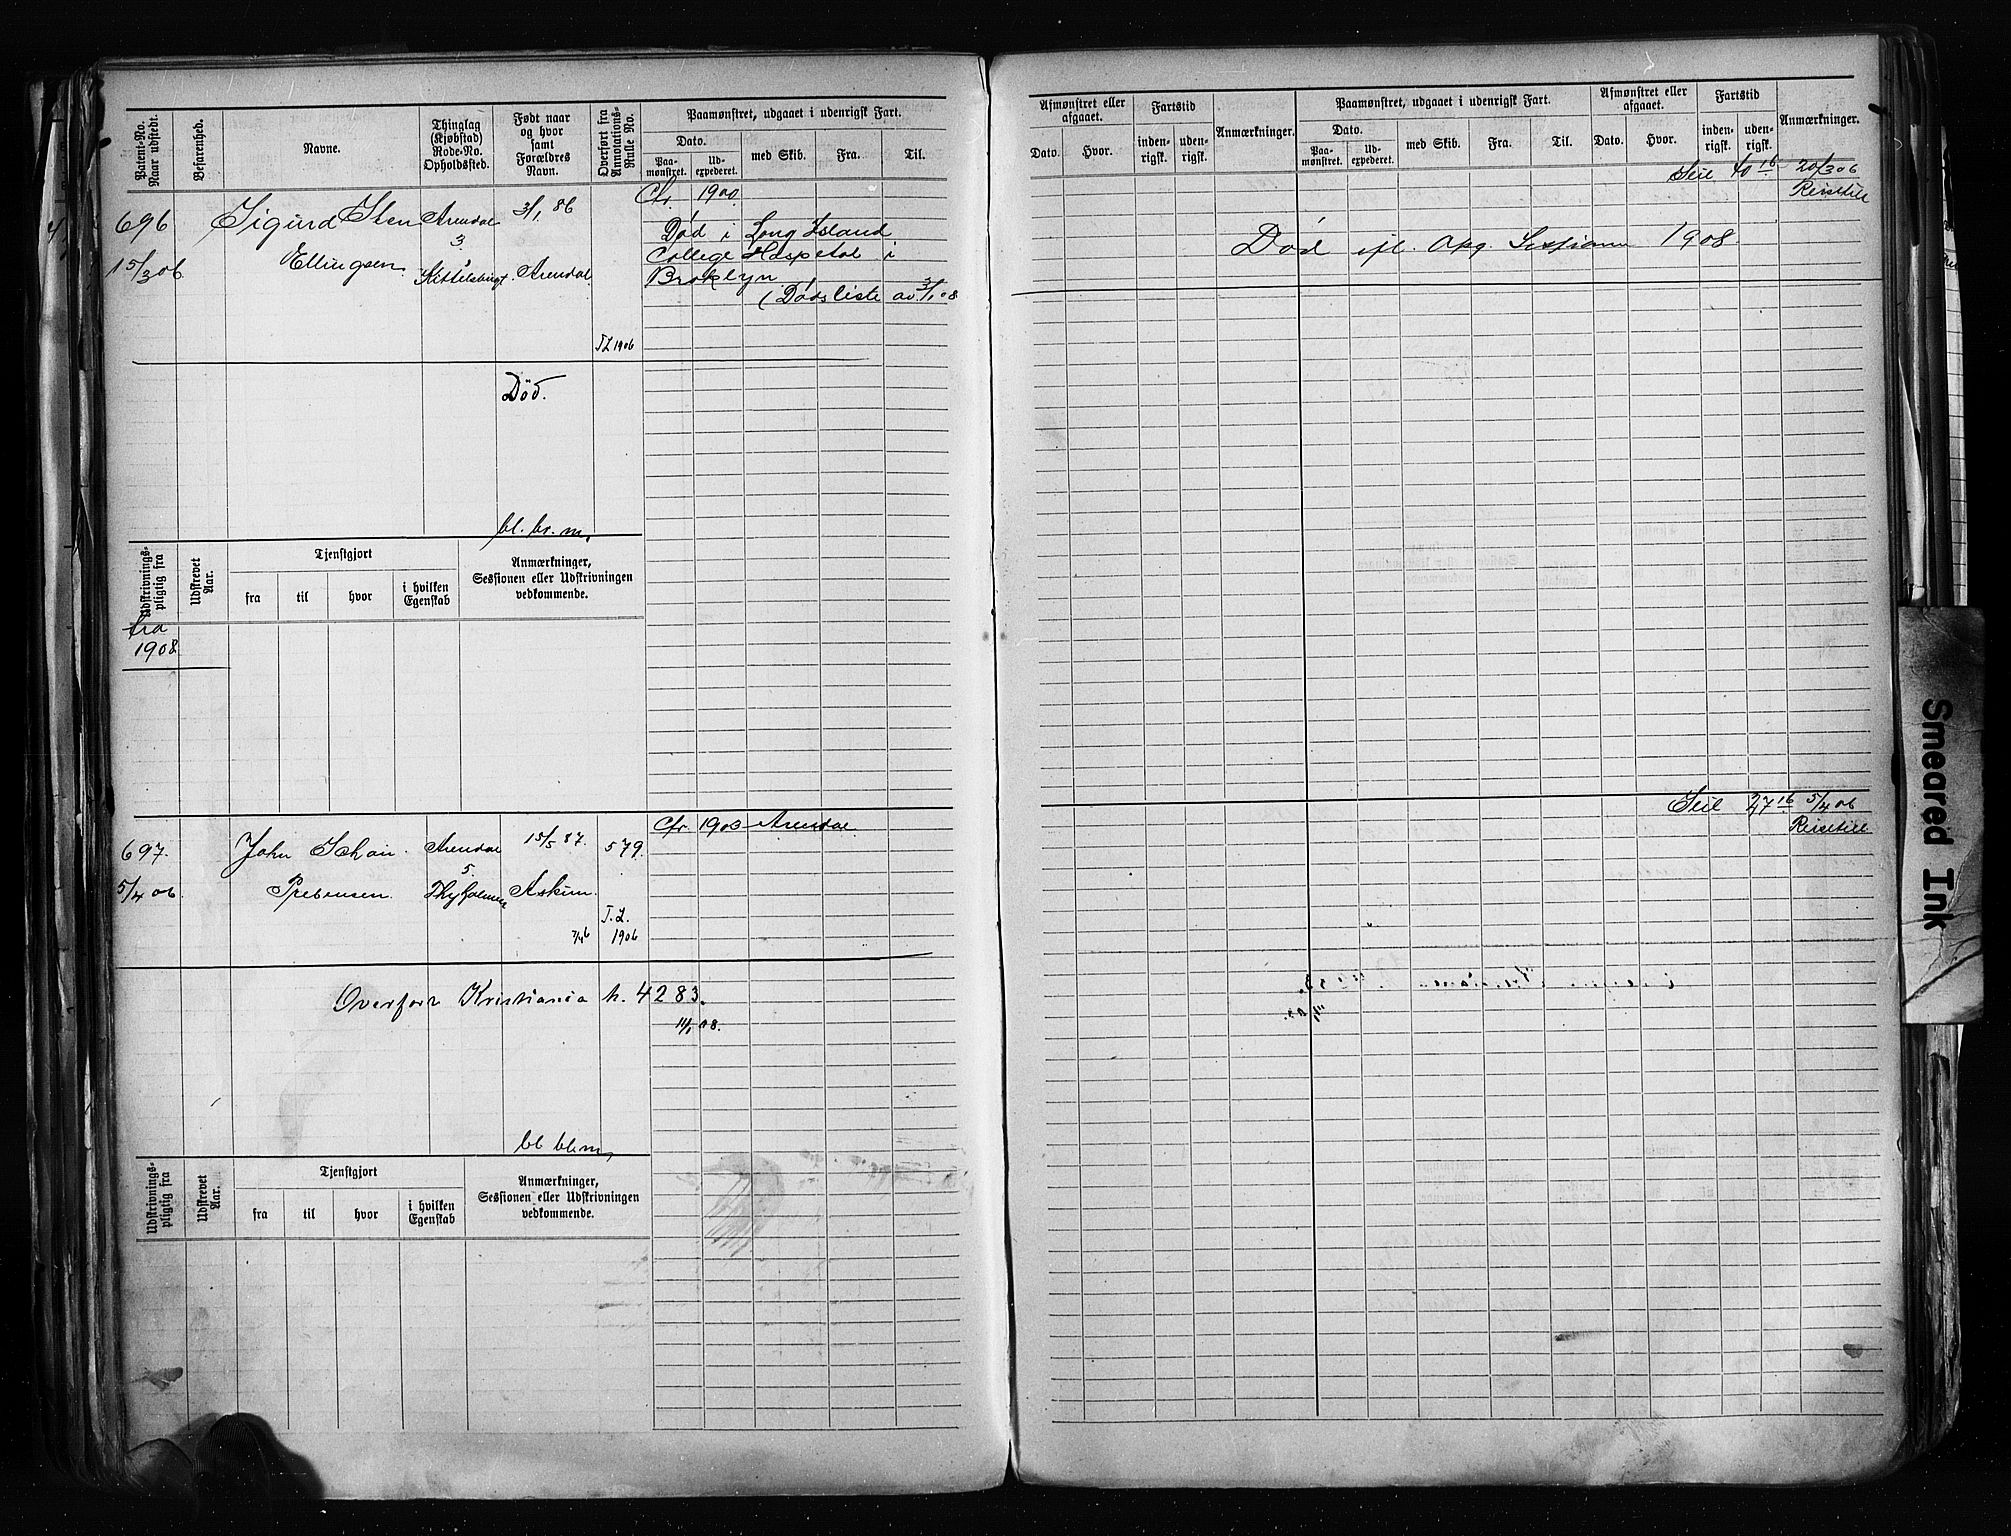 Patent-No. Naar udstedt.
Befarenhed.
Navne.
Thinglag (Kjøbstad) Rode-No. Opholdssted.
Født naar og hvor samt Forældres Navn.
Overført fra Annotations-Rulle No.
Paamønstret, udgaaet i udenrigsk Fart.
Dato.
Paa-mønstret.
Ud-expederet.
med Skib.
Fra.
Til.
696
15/3 06
Sigurd Sten
Ellingsen
Arendal
3
Kittelsbugt.
3/1 86
Arendal
T L 1906
Cfr. 1900
Død i Long Island
College Hospetal i
Broklyn
(Dødsliste av 3/1 08
Død.
bl. br. m.
Udskrivnings-pligtig fra
Udskrevet Aar.
Tjenstgjort
fra
til
hvor
i hvilken Egenskab
Anmærkninger, Sessionen eller Udskrivningen vedkommende.
fra
1908
697.
5/4 06
John Schou
Prebensen
Arendal
5.
Thyholmen
15/5 87.
Askim
579.
T. L.
1906
Cfr. 1903 Arendal
Overført Kristiania h. 4283.
11/1 08.
bl bl m,
Udskrivnings-pligtig fra
Udskrevet Aar.
Tjenstgjort
fra
til
hvor
i hvilken Egenskab
Anmærkninger, Sessionen eller Udskrivningen vedkommende.
Afmønstret eller afgaaet.
Dato.
Hvor.
Fartstid
inden-rigsk.
uden-rigsk.
Anmærkninger.
Paamønstret, udgaaet i udenrigsk Fart.
Dato.
Paa-mønstret.
Ud-expederet.
med Skib.
Fra.
Til.
Afmønstret eller afgaaet.
Dato.
Hvor.
Fartstid
inden-rigsk.
uden-rigsk.
Anmærkninger.
Seil 40 16 20/3 06
Reisetill
Død ifl. Opg. Sessionen 1908.
Seil 27 16 5/4 06
Reisetill
Smeared Ink